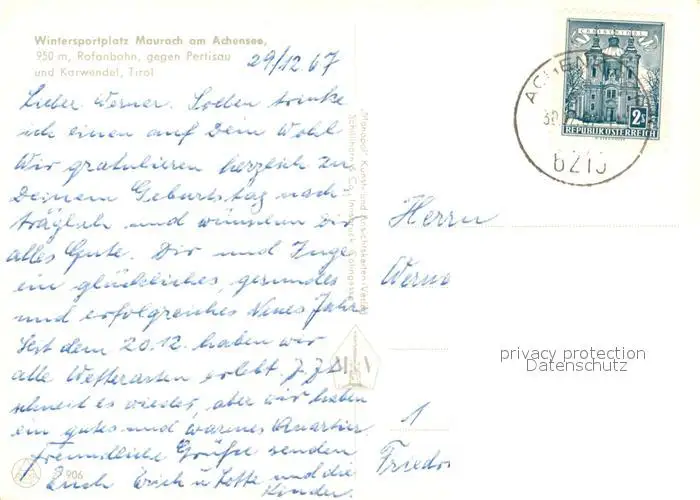 Wintersportplatz Maurach am Achensee,
950 m, Rofanbahn, gegen Pertisau
und Karwendel, Tirol
29/12.67
Lieber Werner. Soeben trinke
ich einen auf Dein Wohl
Wir gratulieren herzlich zu
Deinem Geburtstag nach-
träglich und wünschen Dir
alles Gute. Dir und Inge
ein glückliches, gesundes
und erfolgreiches Neues Jahr
Seit dem 20.12. haben wir
alle Wetterarten erlebt. z. Zt.
schneit es wieder, aber wir haben
ein gutes und warmes Quartier.
Freundliche Grüße senden
Euch Erich u Lotte und die
Kinder.
906
"Monopol" Kunst- und Ansichtskarten-Verlag
Schöllhorn & Co., Innsbruck
CHRISTKINDL
2 S
REPUBLIK ÖSTERREICH
6215
Herrn
Werne
1
Friedo
privacy protection
Datenschutz